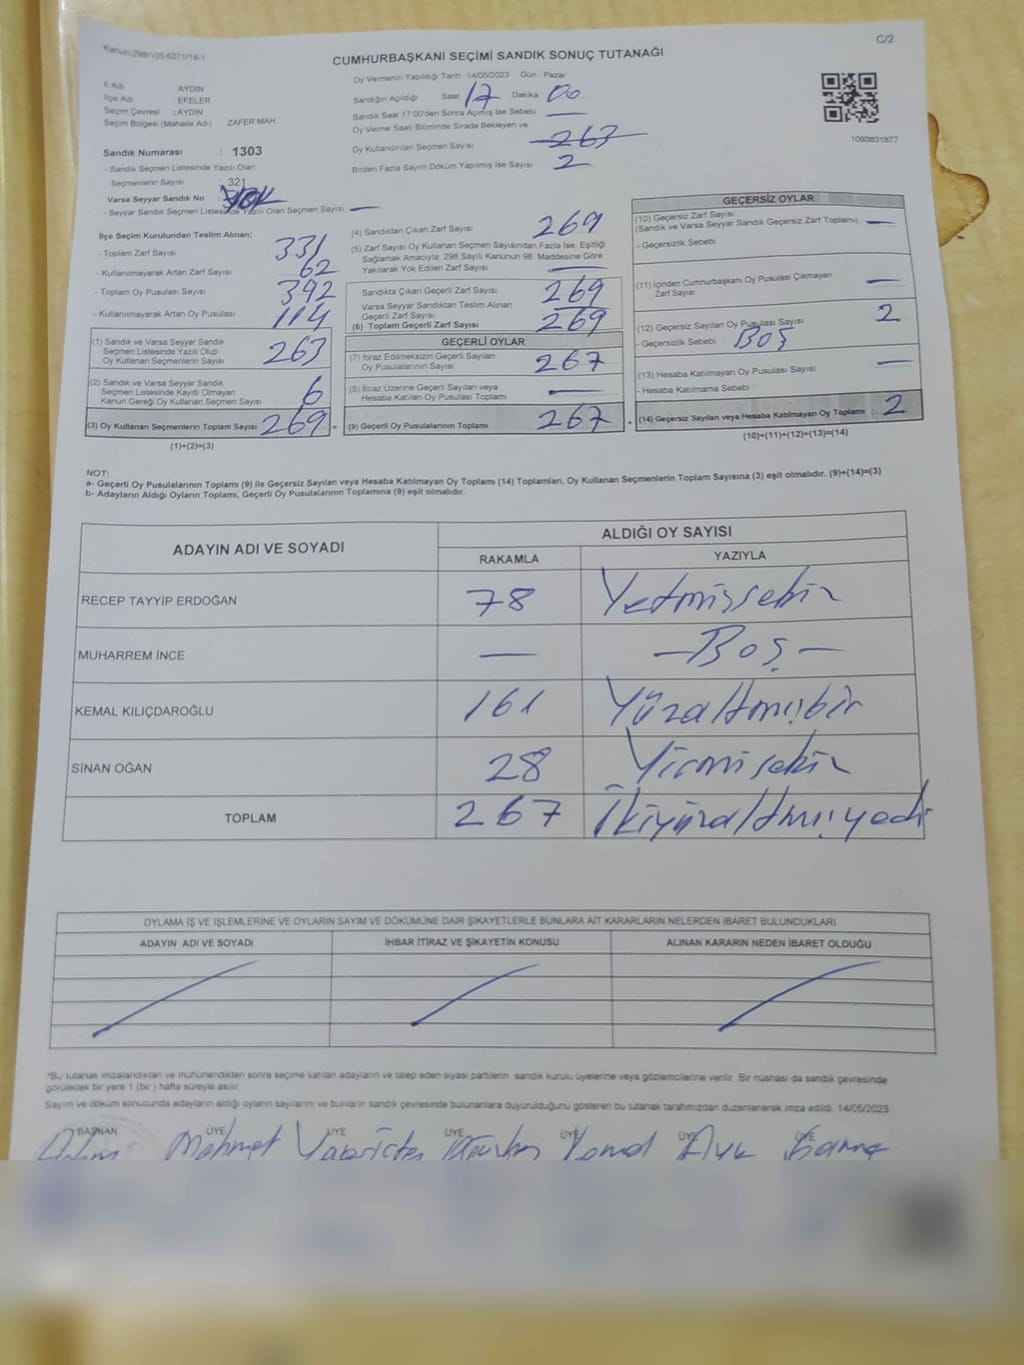 Kanun:298/105;6271/18-1
C/2
CUMHURBAŞKANI SEÇİMİ SANDIK SONUÇ TUTANAĞI
İl Adı : AYDIN
İlçe Adı : EFELER
Seçim Çevresi : AYDIN
Seçim Bölgesi (Mahalle Adı) ZAFER MAH.
Sandık Numarası : 1303
- Sandık Seçmen Listesinde Yazılı Olan
Seçmenlerin Sayısı : 321
Varsa Seyyar Sandık No :
- Seyyar Sandık Seçmen Listesinde Yazılı Olan Seçmen Sayısı : —
Oy Vermenin Yapıldığı Tarih : 14/05/2023 Gün : Pazar
Sandığın Açıldığı Saat 17 Dakika 00
Sandık Saat 17:00'den Sonra Açılmış İse Sebebi —
Oy Verme Saati Bitiminde Sırada Bekleyen ve
Oy Kullandırılan Seçmen Sayısı 263
Birden Fazla Sayım Döküm Yapılmış İse Sayısı 2
1093831877
İlçe Seçim Kurulundan Teslim Alınan;
- Toplam Zarf Sayısı : 331
- Kullanılmayarak Artan Zarf Sayısı : 62
- Toplam Oy Pusulası Sayısı : 392
- Kullanılmayarak Artan Oy Pusulası : 114
(1) Sandık ve Varsa Seyyar Sandık
Seçmen Listesinde Yazılı Olup
Oy Kullanan Seçmenlerin Sayısı 263
(2) Sandık ve Varsa Seyyar Sandık
Seçmen Listesinde Kayıtlı Olmayan
Kanun Gereği Oy Kullanan Seçmen Sayısı 6
(3) Oy Kullanan Seçmenlerin Toplam Sayısı 269 =
(1)+(2)=(3)
(4) Sandıktan Çıkan Zarf Sayısı 269
(5) Zarf Sayısı Oy Kullanan Seçmen Sayısından Fazla İse, Eşitliği
Sağlamak Amacıyla; 298 Sayılı Kanunun 98. Maddesine Göre
Yakılarak Yok Edilen Zarf Sayısı —
Sandıkta Çıkan Geçerli Zarf Sayısı 269
Varsa Seyyar Sandıktan Teslim Alınan
Geçerli Zarf Sayısı —
(6) Toplam Geçerli Zarf Sayısı 269
GEÇERLİ OYLAR
(7) İtiraz Edilmeksizin Geçerli Sayılan
Oy Pusulasının Sayısı 267
(8) İtiraz Üzerine Geçerli Sayılan veya
Hesaba Katılan Oy Pusulası Toplamı —
(9) Geçerli Oy Pusulalarının Toplamı 267 +
GEÇERSİZ OYLAR
(10) Geçersiz Zarf Sayısı
(Sandık ve Varsa Seyyar Sandık Geçersiz Zarf Toplamı) : —
- Geçersizlik Sebebi :
(11) İçinden Cumhurbaşkanı Oy Pusulası Çıkmayan
Zarf Sayısı : —
(12) Geçersiz Sayılan Oy Pusulası Sayısı 2
- Geçersizlik Sebebi : BOŞ
(13) Hesaba Katılmayan Oy Pusulası Sayısı : —
- Hesaba Katılmama Sebebi :
(14) Geçersiz Sayılan veya Hesaba Katılmayan Oy Toplamı : 2
(10)+(11)+(12)+(13)=(14)
NOT:
a- Geçerli Oy Pusulalarının Toplamı (9) ile Geçersiz Sayılan veya Hesaba Katılmayan Oy Toplamı (14) Toplamları, Oy Kullanan Seçmenlerin Toplam Sayısına (3) eşit olmalıdır. (9)+(14)=(3)
b- Adayların Aldığı Oyların Toplamı, Geçerli Oy Pusulalarının Toplamına (9) eşit olmalıdır.
ADAYIN ADI VE SOYADI
ALDIĞI OY SAYISI
RAKAMLA YAZIYLA
RECEP TAYYİP ERDOĞAN 78 Yetmişsekiz
MUHARREM İNCE — —Boş—
KEMAL KILIÇDAROĞLU 161 Yüzaltmışbir
SİNAN OĞAN 28 Yirmisekiz
TOPLAM 267 İkiyüzaltmışyedi
OYLAMA İŞ VE İŞLEMLERİNE VE OYLARIN SAYIM VE DÖKÜMÜNE DAİR ŞİKAYETLERLE BUNLARA AİT KARARLARIN NELERDEN İBARET BULUNDUKLARI
ADAYIN ADI VE SOYADI İHBAR İTİRAZ VE ŞİKAYETİN KONUSU ALINAN KARARIN NEDEN İBARET OLDUĞU
*Bu tutanak imzalandıktan ve mühürlendikten sonra seçime katılan adayların ve talep eden siyasi partilerin sandık kurulu üyelerine veya gözlemcilerine verilir. Bir nüshası da sandık çevresinde
görülecek bir yere 1 (bir) hafta süreyle asılır.
Sayım ve döküm sonucunda adayların aldığı oyların sayılarını ve bunların sandık çevresinde bulunanlara duyurulduğunu gösteren bu tutanak tarafımızdan düzenlenerek imza edildi. 14/05/2023
BAŞKAN ÜYE ÜYE ÜYE ÜYE ÜYE ÜYE
Mehmet